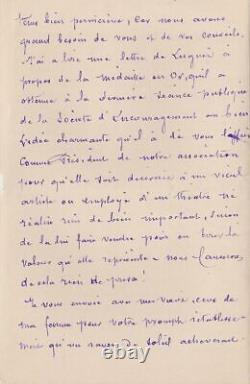 bien permission, car nous avons
grand besoin de vous et de vos conseils.
J'ai à lire une lettre de Lugné à
propos de la médaille en Or, qu'il a
obtenue à la dernière séance publique
de la Société d'Encouragement au bien
l'idée charmante qu'il a dé vous
comme Président de notre association
pour qu'elle soit décernée à un vieil
artiste ou employé d'un théâtre ne
réalise rien de bien important, sinon
de la lui faire vendre pour en tirer la
valeur qu'elle représente & nous
de cela rien de
Je vous envoie avec mes vœux, ceux de
ma femme pour votre prompt rétablisse-
ment qu'un rayon de soleil achèverait
© unique-boutique.com